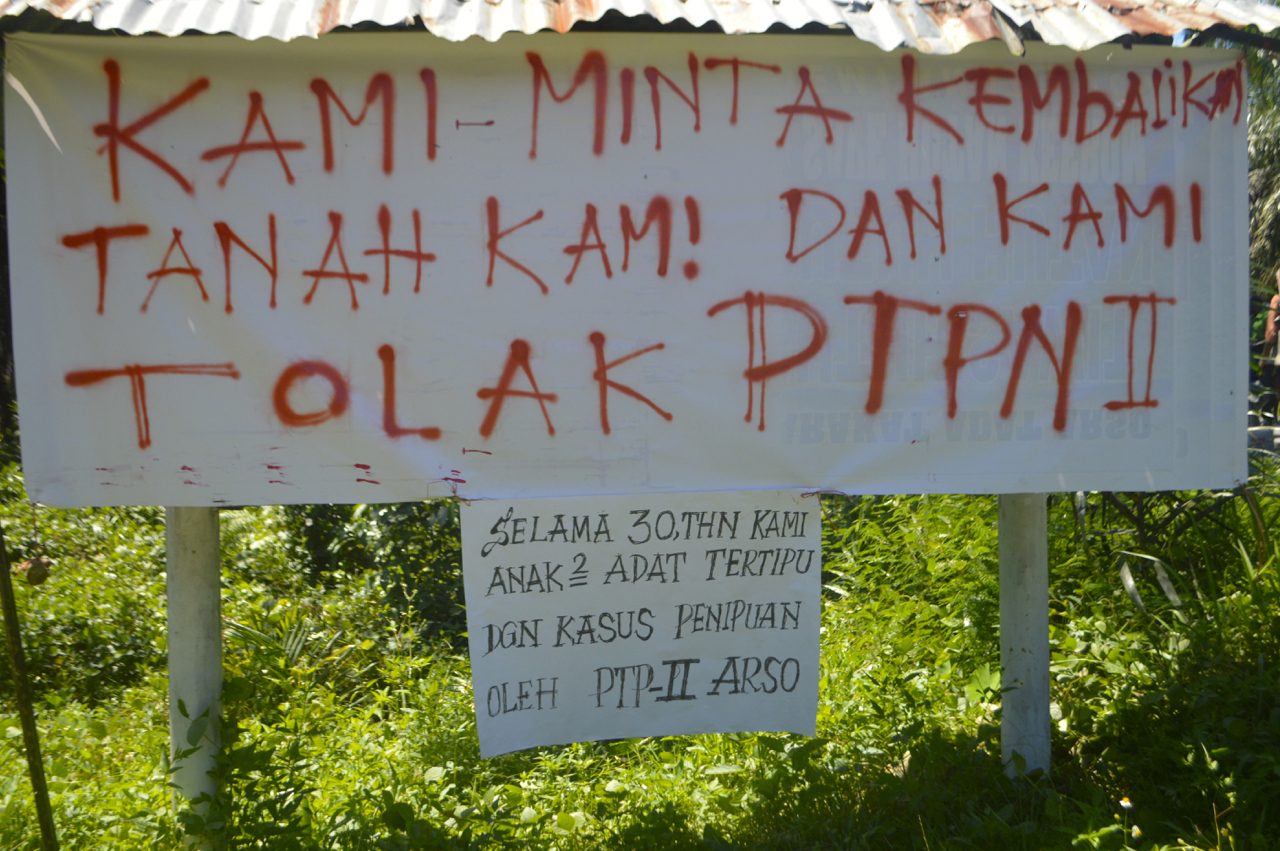 KAMI - MINTA KEMbALiKAN
TANAH KAM! DAN KAMI
TOLAK PTPN II
SELAMA 30,THN KAMI
ANAK2 ADAT TERTIPU
DGN KASUS PENIPUAN
OLEH PTP-II ARSO